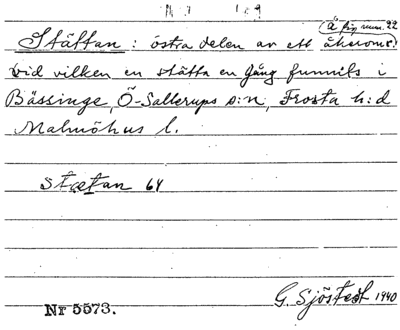 Å fig. num. 22
Stättan : östra delen av ett åkeromr.
vid vilken en stätta en gång funnits i
Bässinge, Ö-Sallerups s:n, Frosta h:d
Malmöhus l.
stætan 64
G. Sjöstedt 1940
Nr 5573.